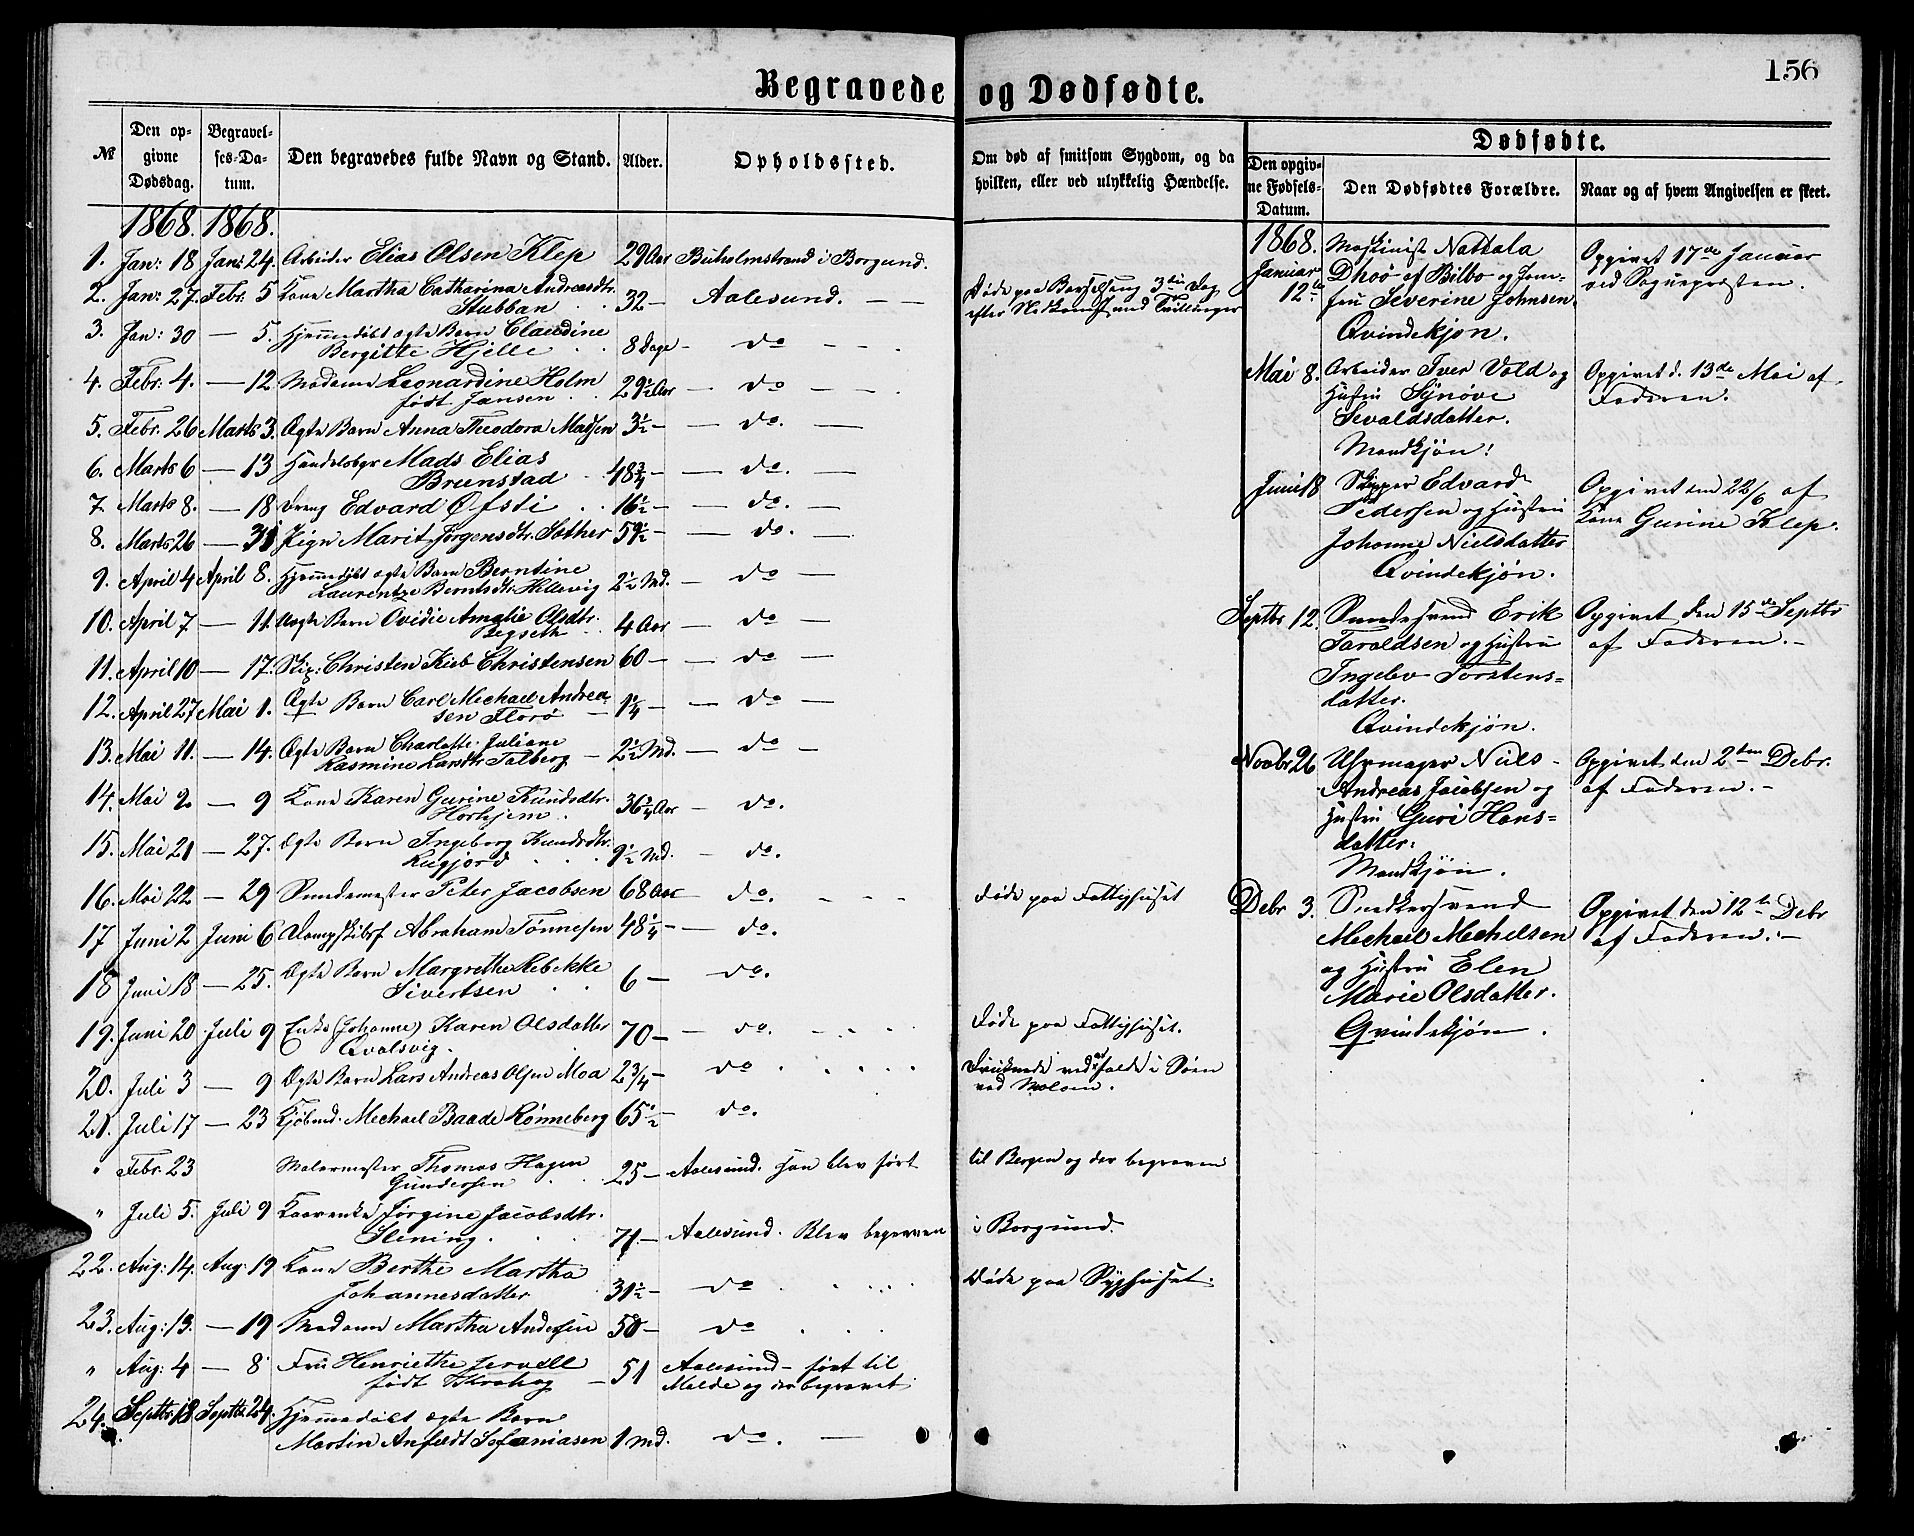 156
Begravede og Dødfødte.
№
Den opgivne Dødsdag.
Begravelses-Datum.
Den begravedes fulde Navn og Stand.
Alder.
Opholdssted.
Om død af smitsom Sygdom, og da hvilken, eller ved ulykkelig Hændelse.
Dødfødte.
Den opgivne Fødsels-Datum.
Den Dødfødtes Forældre.
Naar og af hvem Angivelsen er skeet.
1868. 1868.
1. Jan: 18 Jan: 24. Arbeider Elias Olsen Klep 29 Aar Buholmstrand i Borgund.
2. Jan: 27. Febr. 5 Kone Martha Catharina Andreasdtr. Stubban 32 — Aalesund. — — Døde paa Barselseng 3die Dag efter Nedkomst med Tvillinger
3. Jan: 30 — 5. Hjemmedøbt ægte Barn Claudine Bergitte Hjelle 8 Dage — do — -
4. Febr: 4. — 12 Madame Leonardine Holm født Jansen 29½ Aar — do — -
5. Febr. 26 Marts 3. Ægte Barn Anna Theodora Madsen 3½ — — do. —
6. Marts 6 — 13 Handelsbgr Mads Elias Brunstad 48¾ — — do. —
7. Marts 8. — 18 Dreng Edvard Øfsti 16½ — — do. —
8. Marts 26 — 31 Pigen Marit Jørgensdtr. Sother 59½ — — do. —
9. April 4 April 8. Hjemmedøbt ægte Barn Berntine Laurentze Berntsdtr. Hellevig 2½ Md. — do —
10. April 7 — 11. Uægte Barn Ovidie Amalie Olsdtr. Begseth 4 Aar — do —
11. April 10 — 17. Skip: Christen Kieb Christensen 60 — — do —
12. April 27 Mai 1. Ægte Barn Carl Michael Andreasen Florø — 1¼ — — do —
13. Mai 11. — 14. Ægte Barn Charlotte Juliane Rasmine Larsdtr Talberg — 2½ Md. — do —
14. Mai 2 — 9 Kone Karen Gurine Knudsdtr. Horhjem. 36¾ Aar — do.
15. Mai 21 — 27. Ægte Barn Ingeborg Knudsdtr. Rugjord 9½ Md. — do.
16. Mai 22 — 29 Smedemester Peter Jacobsen 68 Aar — do. - - - Døde paa Fattighuset
17 Juni 2 Juni 6 Abraham Tønnesen 48¼ — — do.
18 Juni 18 — 25. Ægte Barn Margrethe Rebekke Sivertsen 6 — do.
19. Juni 20 Juli 9 Enke (Johanne) Karen Olsdatter Qvalsvig. 70 — — do. Døde paa Fattighuset.
20. Juli 3 — 9 Ægte Barn Lars Andreas Olsen Moa 2¾ — do Druknede ved at falde i Søen ved Moloen.
21. Juli 17 — 23 Kjøbmd. Mechael Baade Rønneberg 65½ — do.
" Febr. 23 Malermester Thomas Hagen Gundersen 25 — Aalesund. Han blev ført til Bergen og der begraven
" Juli 5. Juli 9 Jørgine Jacobsdtr. Slening. 71. — Aalesund. Blev begraven i Borgund.
22. Aug: 14. Aug: 19 Kone Berthe Martha Johannesdatter 31½ — do Døde paa Sygehuset.
23. Aug: 13. — 19 Madame Martha Andersen 50 — do
" Aug: 4 — 8 Fru Henriethe Jervell født — 51 Aalesund — ført til Molde og der begravet
24. Septbr. 18 Septbr. 24. Hjemmedøbt ægte Barn Martin Anfædt Sefaniasen 1 Md. do. —
1868.
Januar 12te Maskinist Nattala Dhrø af Bilbo og Jomfru Severine Johnsen. Qvindekjøn. Opgivet 17de Januar ved Sognepresten.
Mai 8. Arbeider Iver Vold og Hustru Synøve Sevaldsdatter. Mandkjøn! Opgivet d. 13de Mai af Faderen.
Juni 18 Skipper Edvard Pedersen og Hustru Johanne Nielsdatter Qvindekjøn. Opgivet den 22/6 af Kone Gurine Klep.
Septbr 12. Smedesvend Erik Taraldsen og Hustru Ingebor Torstensdatter. Qvindekjøn. Opgivet den 15de Septbr af Faderen. —
Novbr 26 Uhrmager Niels Andreas Jacobsen og Hustru Guri Hansdatter: Mandkjøn. Opgivet den 2den Debr. af Faderen. —
Debr 3. Snedkersvend Mechael Mechelsen og Hustru Elen Marie Olsdatter. Qvindekjøn. Opgivet den 12te Debr af Faderen. —